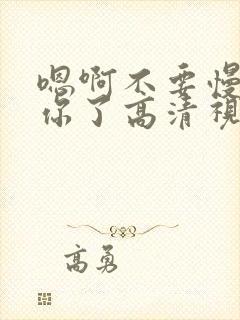 嗯啊不要慢
你了高清视
高勇